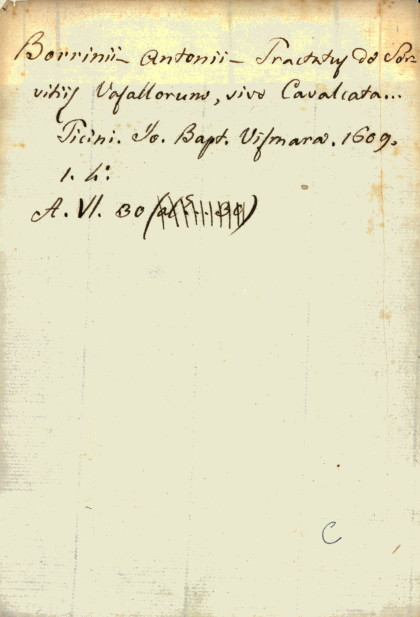 Borrinii - Antonii - Tractatus de Ser-
vitiis Vasallorum, sive Cavalcata...
Ticini. Io. Bapt. Vismara. 1609.
1. 4.º
A. VI. 30
C